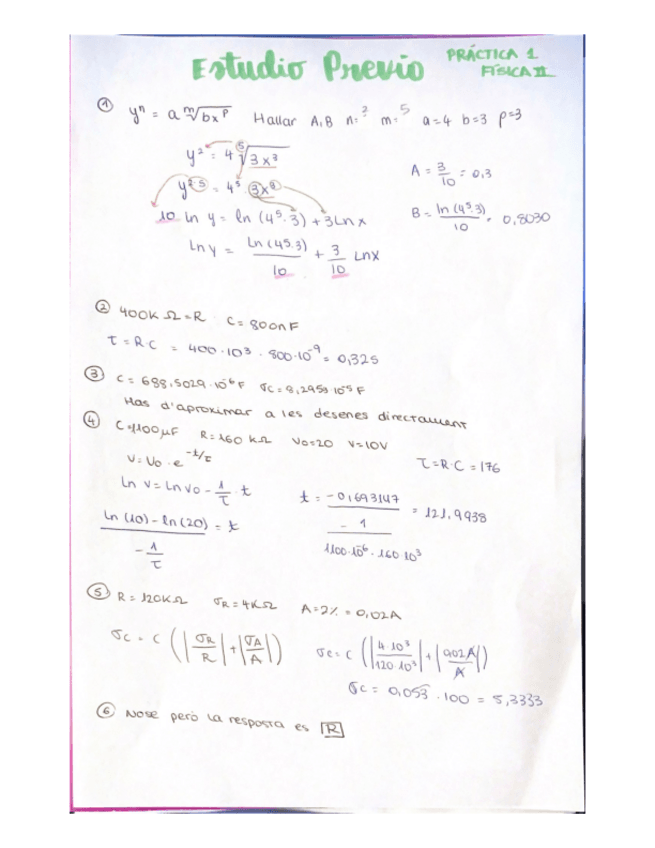 Estudio Previo
PRÁCTICA 1
FÍSICA II
① yⁿ = a ᵐ√(bxᵖ) Hallar A,B n=² m=⁵ a=4 b=3 p=3
y² = 4 ⁵√(3x³)
A = 3/10 = 0,3
y²·⁵ = 4⁵ · 3x³
B = ln(4⁵·3)/10 = 0,8030
10 ln y = ln (4⁵·3) + 3Ln x
ln y = ln(4⁵·3)/10 + 3/10 Lnx
② 400K Ω = R C = 800nF
τ = R·C = 400·10³ · 800·10⁻⁹ = 0,32s
③ C = 688,5029·10⁻⁶ F σc = 8,2953·10⁻⁵ F
Has d'aproximar a les desenes directament
④ C=1100μF R=160 KΩ V₀=20 V=10V
V = V₀ · e^(-t/τ)
τ = R·C = 176
Ln V = Ln V₀ - 1/τ · t
t = (-0,693147)/(-1/(1100·10⁻⁶·160·10³)) = 121,9938
(Ln (10) - ln (20))/(-1/τ) = t
⑤ R = 120KΩ σR = 4KΩ A=2% = 0,02A
σc = C (|σR/R| + |σA/A|)
σc = C (|4·10³/120·10³| + |0,02A/A|)
σc = 0,053 · 100 = 5,3333
⑥ Nose però la resposta es R